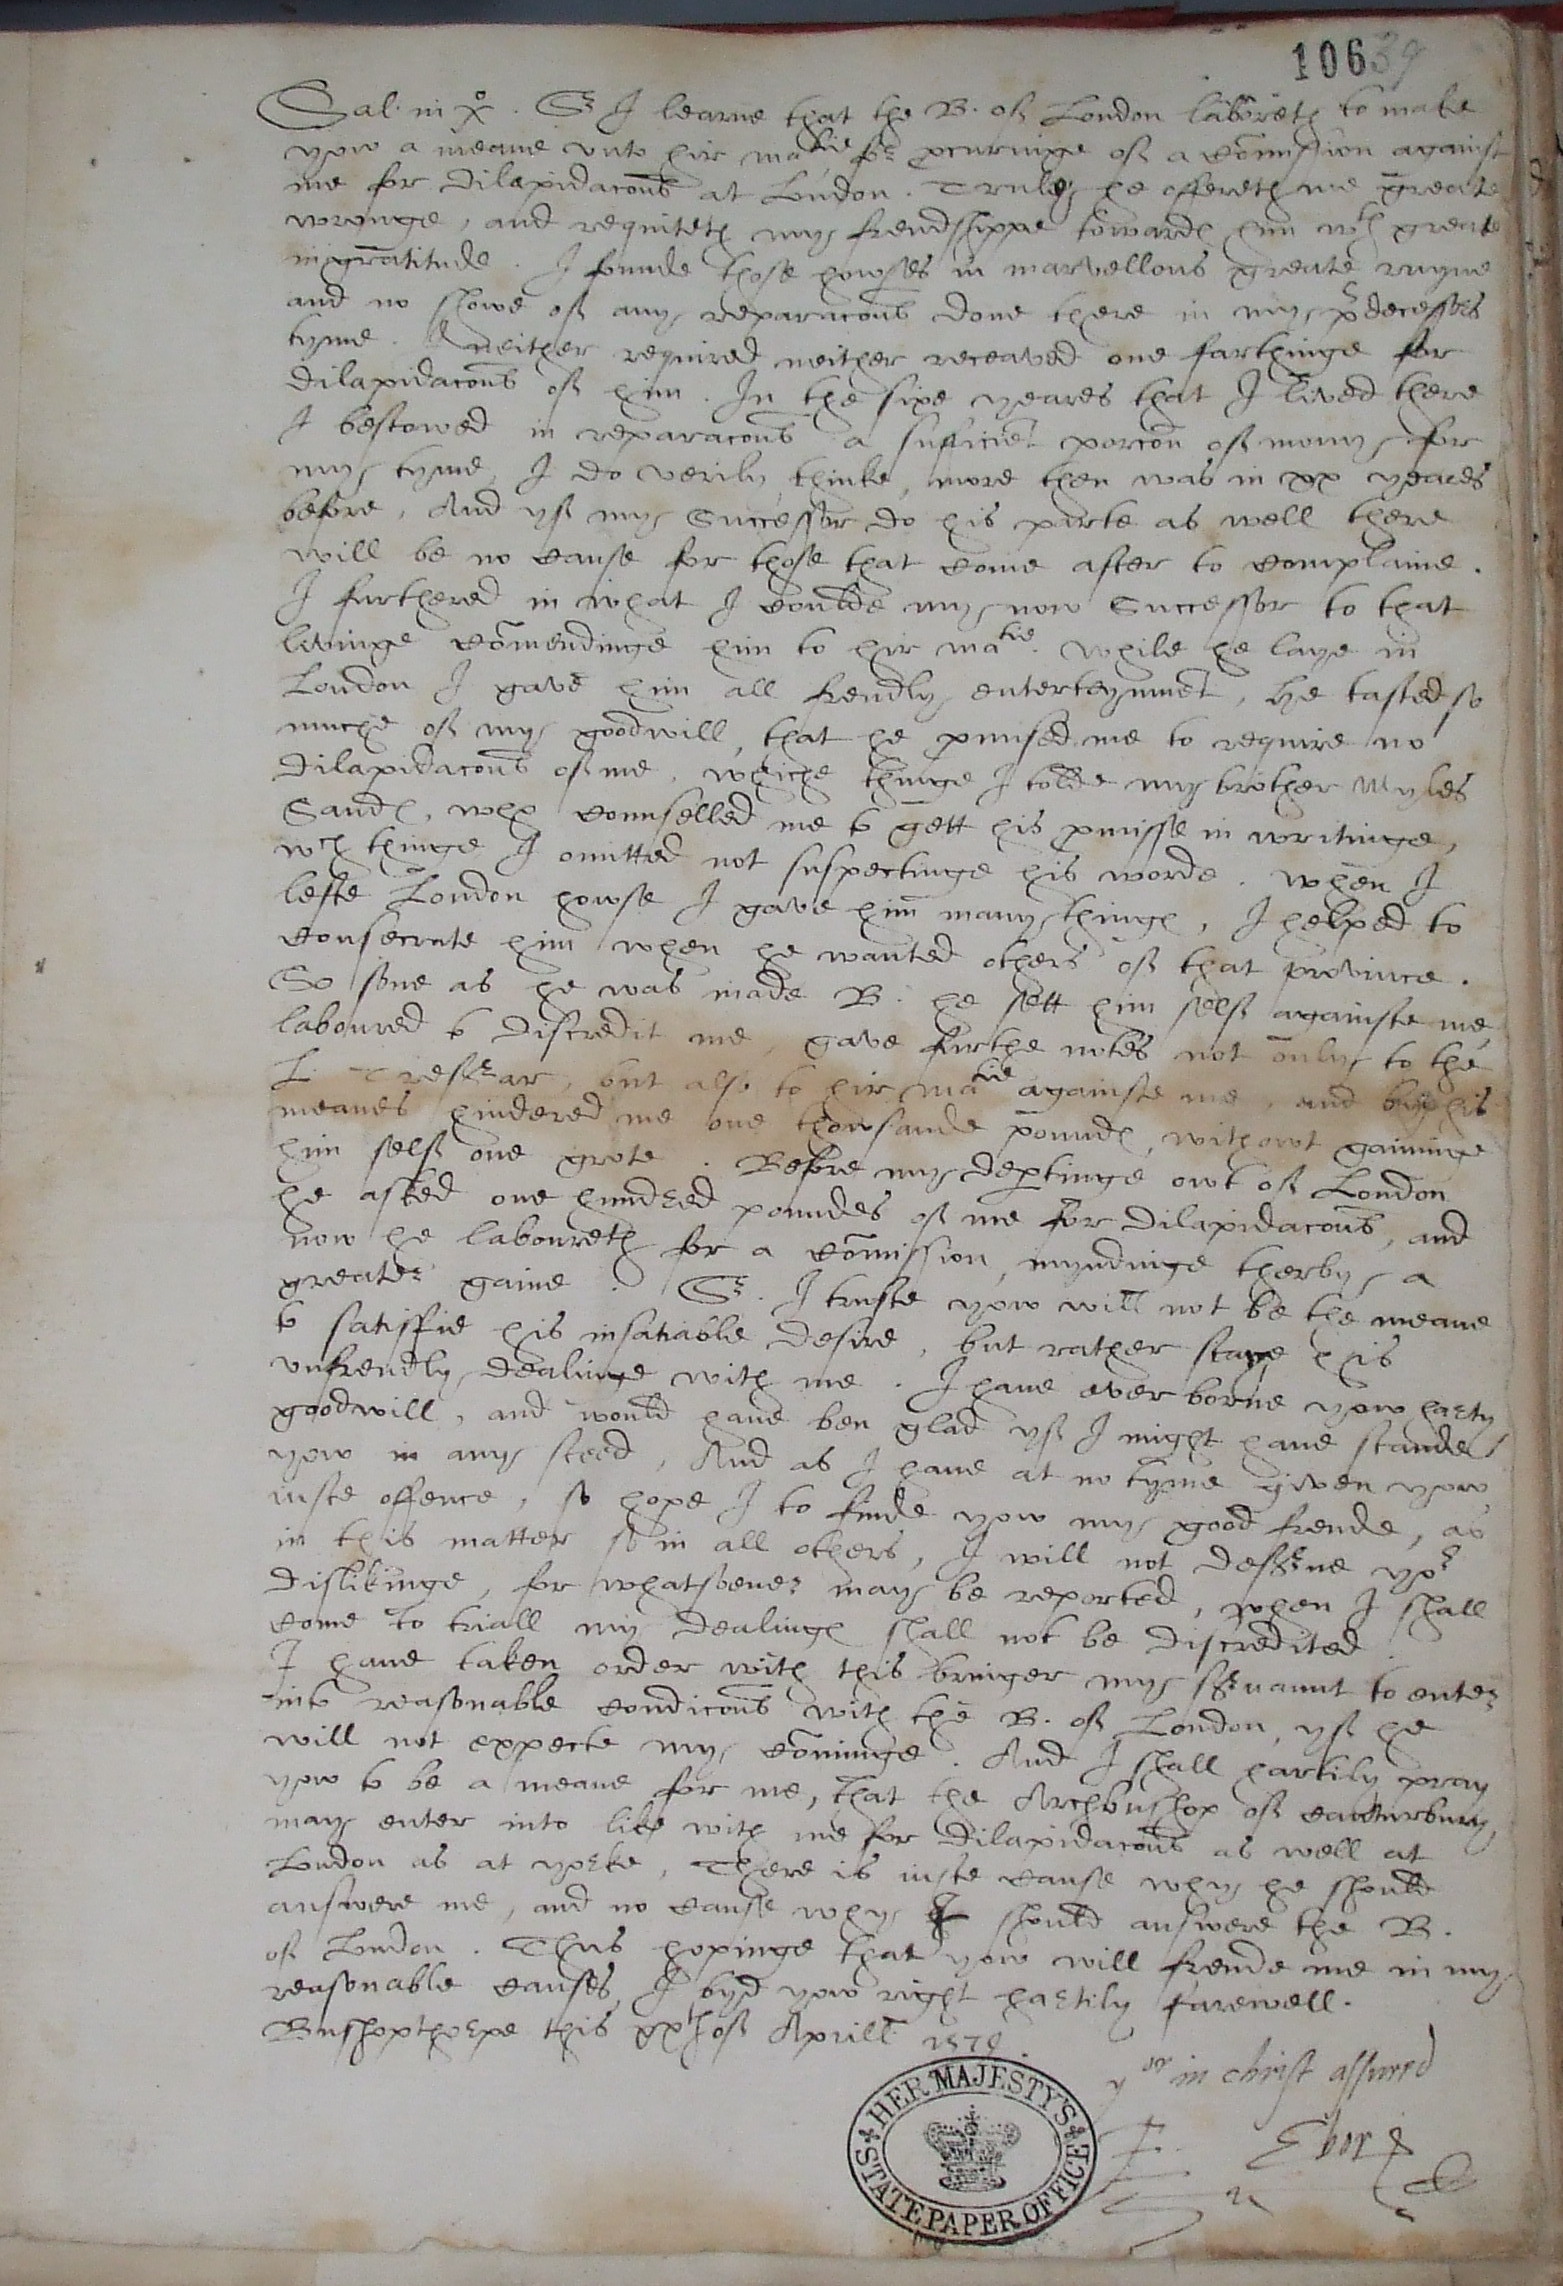 106 39
Sal. in Xo. Sr I learne that the B. of London laboreth to make
yow a meane vnto hir matie for procuringe of a commission against
me for dilapidacons at London. Truly he offereth me greate
wronge, and requiteth my frendshippe towards him wth greate
ingratitude. I founde those howses in marvellous greate ruyne
and no showe of any reparacons done there in my predecessors
tyme. I neither required neither receaved one farthinge for
dilapidacons of him. In the sixe yeares that I lived there
I bestowed in reparacons a sufficient porcon of mony for
my tyme, I do verily thinke, more then was in xx yeares
before, And yf my Successor do his parte as well there
will be no cause for those that come after to complaine.
I furthered in what I coulde my now Successor to that
livinge comendinge him to hir matie. while he laye in
London I gave him all frendly enterteynment, he tasted so
muche of my goodwill, that he promised me to require no
dilapidacons of me, whiche thinge I tolde my brother Myles
Sands, who counselled me to gett his promisse in writinge,
wch thinge I omitted not suspectinge his worde. when I
lefte London howse I gave him many things, I helped to
consecrate him when he wanted others of that province.
So sone as he was made B. he sett him self againste me,
laboured to discredit me, gave furthe notes not only to the
L. Tresurar, but also to hir matie againste me, and by his
meanes hindered me one thowsande pounds, without gaininge
him self one grote. Before my departinge owt of London
he asked one hundred poundes of me for dilapidacons, and
now he laboureth for a commission, myndinge therby a
greater gaine. Sr. I truste yow will not be the meane
to satisfie his insatiable desire, but rather staye his
vnfrendly dealinge with me. I haue ever borne yow harty
goodwill, and would haue ben glad yf I might haue stande
yow in any steed, And as I haue at no tyme given yow
iuste offence, so hope I to finde yow my good frende, as
in this matter so in all others, I will not deserue yor
dislikinge, for whatsoever may be reported, when I shall
come to triall my dealings shall not be discredited.
I haue taken order with this bringer my seruaunt to enter
into reasonable condicons with the B. of London, yf he
will not expecte my cominge. And I shall hartily pray
yow to be a meane for me, that the Archbushop of Canturbury,
may enter into like with me for dilapidacons as well at
London as at yorke, There is iuste cause why he should
answere me, and no cause why I should answere the B.
of London. Thus hopinge that yow will frende me in my
reasonable causes, I byd yow right hartily farewell.
Bushopthorpe this xxth of Aprill 1579.
yor in christ assured
E. Ebor
HER MAJESTY'S STATE PAPER OFFICE